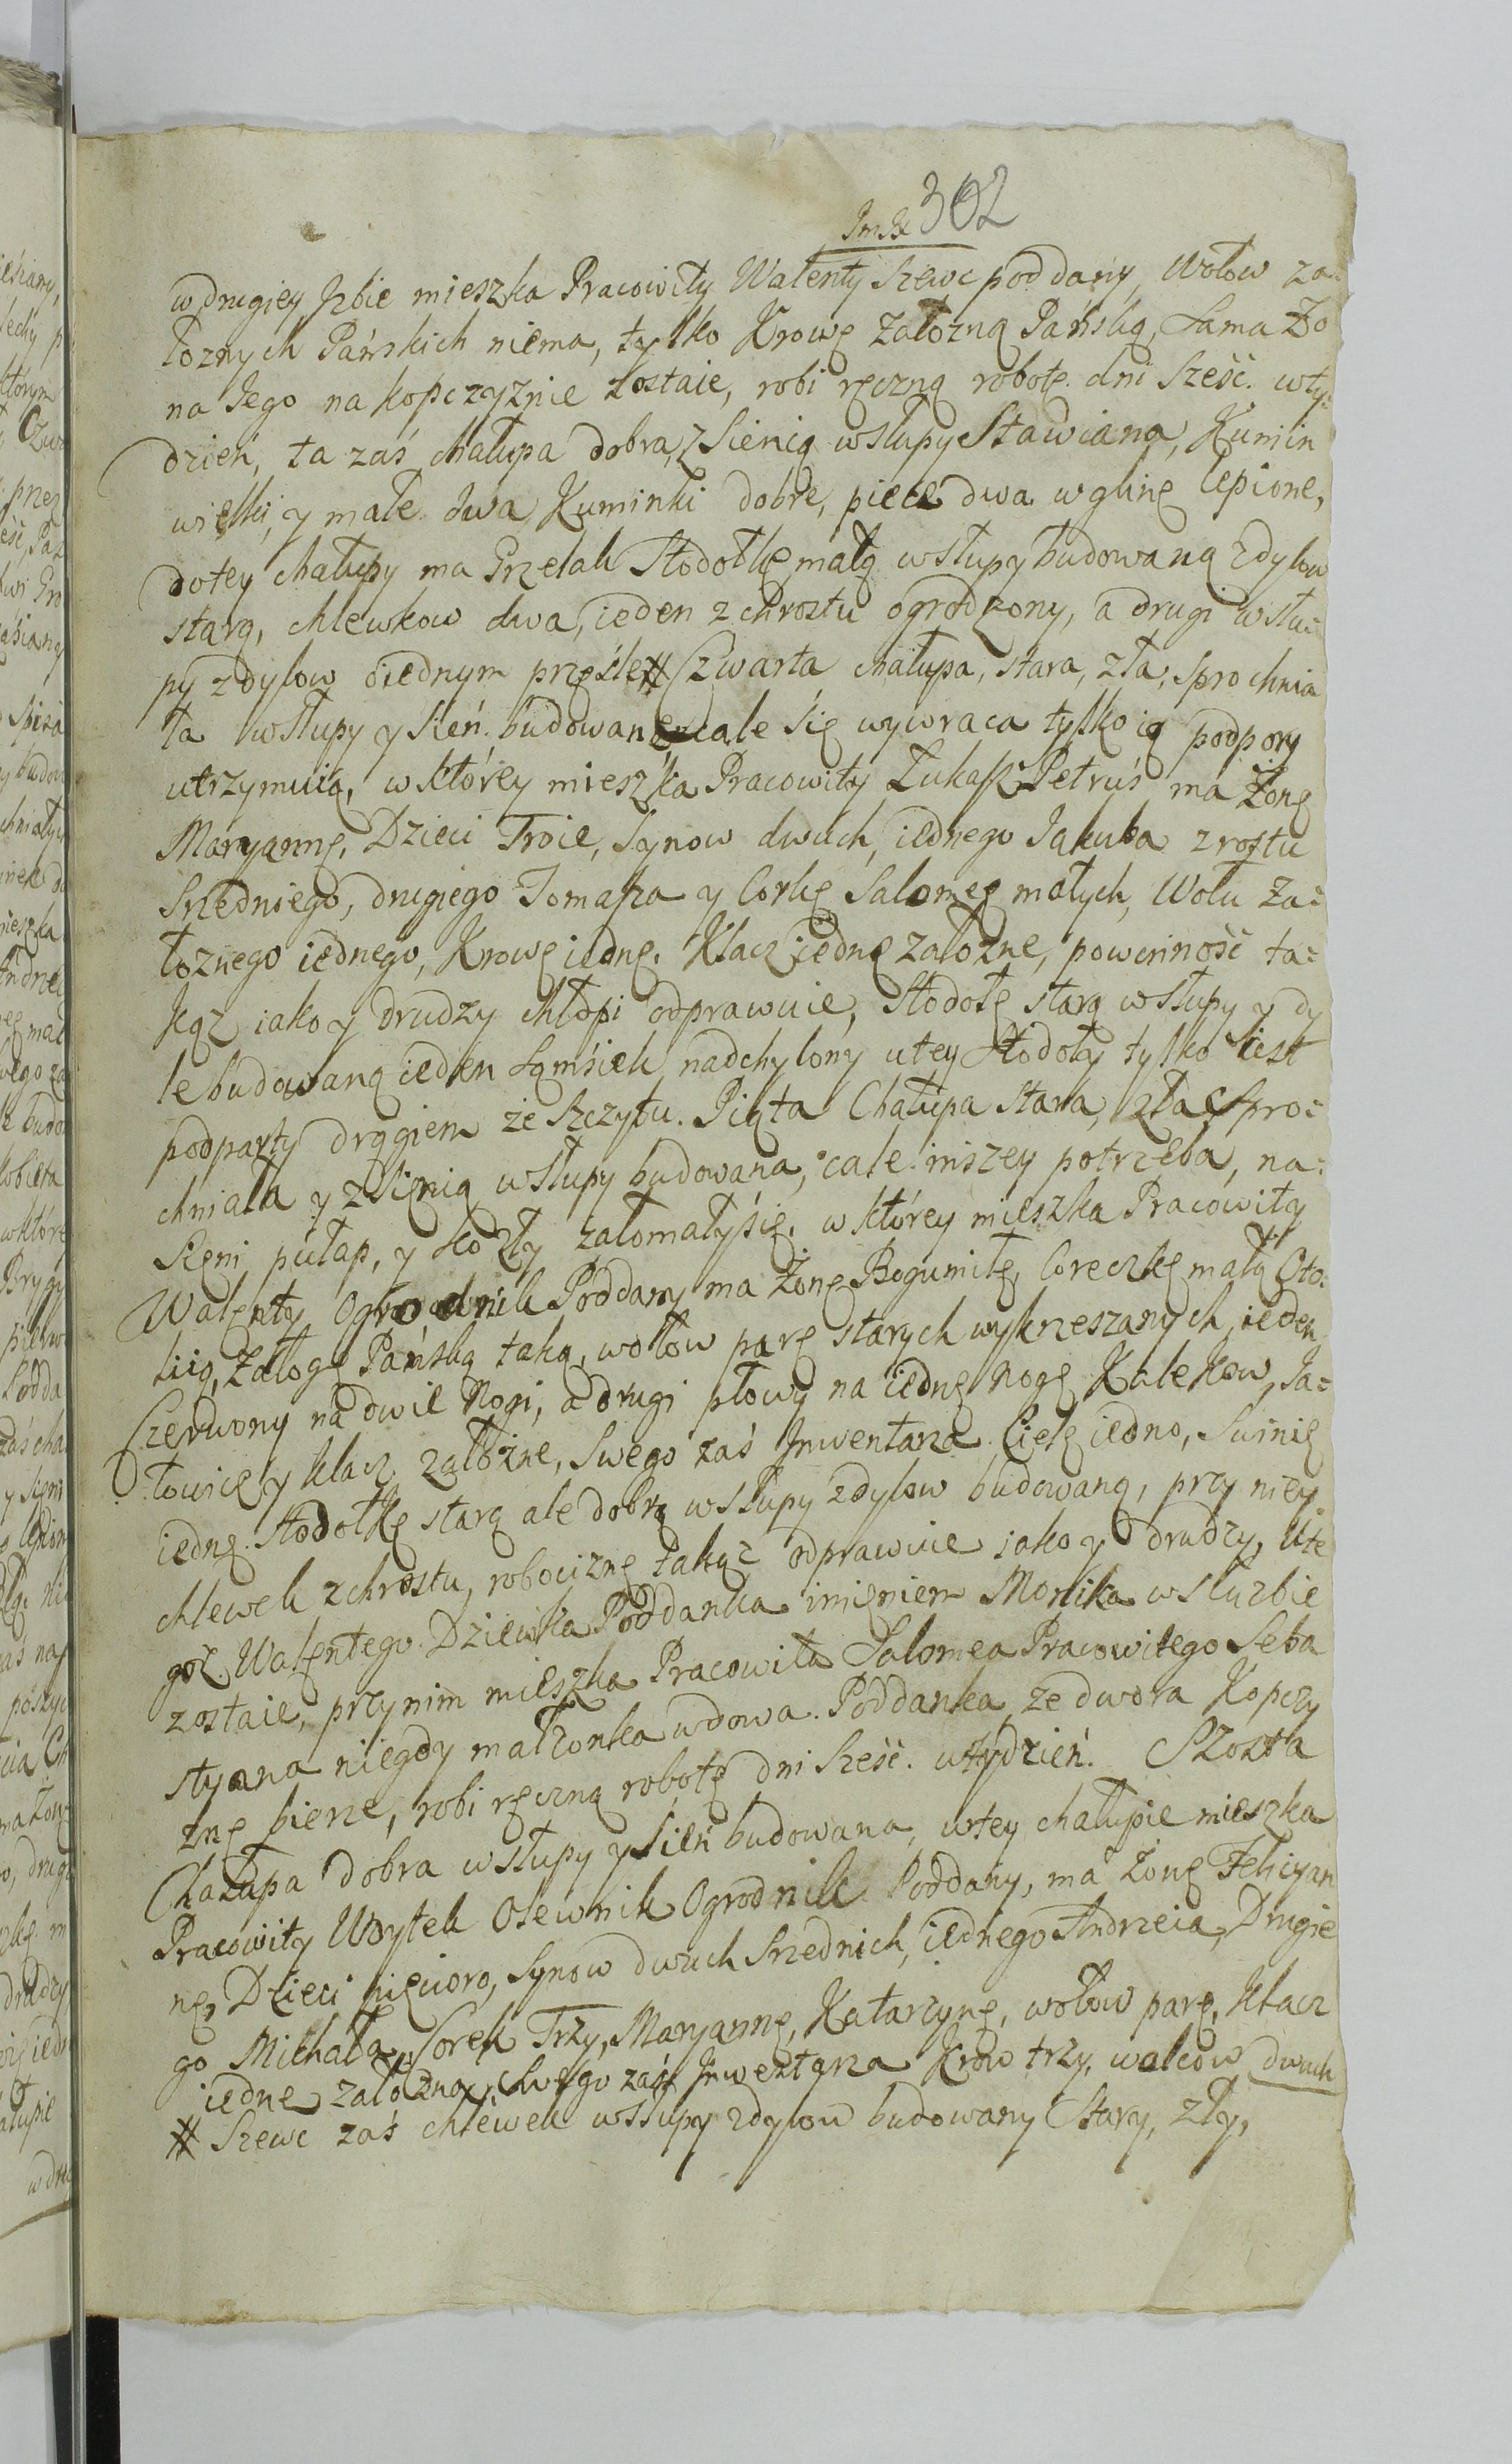 302
w drugiey Jzbie mieszka Pracowity Walenty Szewc poddany, Wołow za=
łoznych Pańskich niema, tylko Krowę Załozną Pańską, Sama Żo
na Jego na kopczyznie zostaie, robi ręczną robotę dni sześć. wty=
dzień, ta zaś chałupa dobra, z Sienią wsłupy Stawiana, Kumin
wielki, y małe dwa Kuminki dobre, piece dwa wglinę lepione,
dotey chałupy ma Grzelak Stodołkę małą wsłupy budowaną zdylow
starą, chlewkow dwa, ieden z chrostu ogrodzony, a drugi wsłu=
py zdylow oiednym przęśle # Czwarta chałupa, stara, zła, sprochnia
ła wsłupy y Sień budowane, cale się wywraca tylko ią podpory
utrzymuią, w którey mieszka Pracowity Łukasz Petruś ma Żonę
Maryannę, Dzieci Troie, Synow dwuch, iednego Jakuba z rostu
Srzedniego, drugiego Tomasza y Corkę Salomeę małych, Wołu Za=
łoznego iednego, Krowę iednę, Klacz iednę załozne, powinność ta=
kąż iako y drudzy chłopi odprawuie, Stodołę starą wsłupy y dy
le budowaną ieden Sąmsiek nadchylony utey Stodoły tylko iest
podparty drągiem ze szczytu. Piąta Chałupa stara, zła, spro=
chniała y z Sienią wsłupy budowana, cale inszey potrzeba, na=
Sieni pułap, y kozły załomały się, w którey mieszka Pracowity
Walenty Ogrodnik Poddany ma Żonę Bogumiłę, Coreczkę małą Oto=
lią, Załogę Pańską taką, wołow parę starych wykrzeszanych, ieden
Czerwony na dwie Nogi, a drugi płowy na iednę nogę Kalekow, Ja=
łowicę y klacz załozne, Swego zaś Jnwentarza Cielę iedno, Swinię
iednę. Stodołkę starą ale dobrą wsłupy zdylow budowaną, przy niey
chlewek z chrostu, robociznę takąż odprawuie iako y drudzy, Ute
goż Walentego Dziewka Poddanka imieniem Monika w Służbie
zostaie, przynim mieszka Pracowita Salomea Pracowitego Seba
styana niegdy małżonka wdowa Poddanka, ze dwora Kopczy
znę bierze, robi ręczną robotę dni sześć. wtydzień. Szosta
Chałupa dobra wsłupy y Sień budowana, wtey chałupie mieszka
Pracowity Woytek Osewnik Ogrodnik Poddany, ma żonę Felicyan
nę, Dzieci pięcioro, Synow dwuch Srzednich, iednego Andrzeia, Drugie
go Michała, Corek Trzy, Maryannę, Katarzynę, wołow parę, Klacz
iednę załozną, Swego zaś Jnwentarza Krow trzy, wolcow dwuch
# Szewc zaś chlewek wsłupy zdylow budowany Stary, zły,